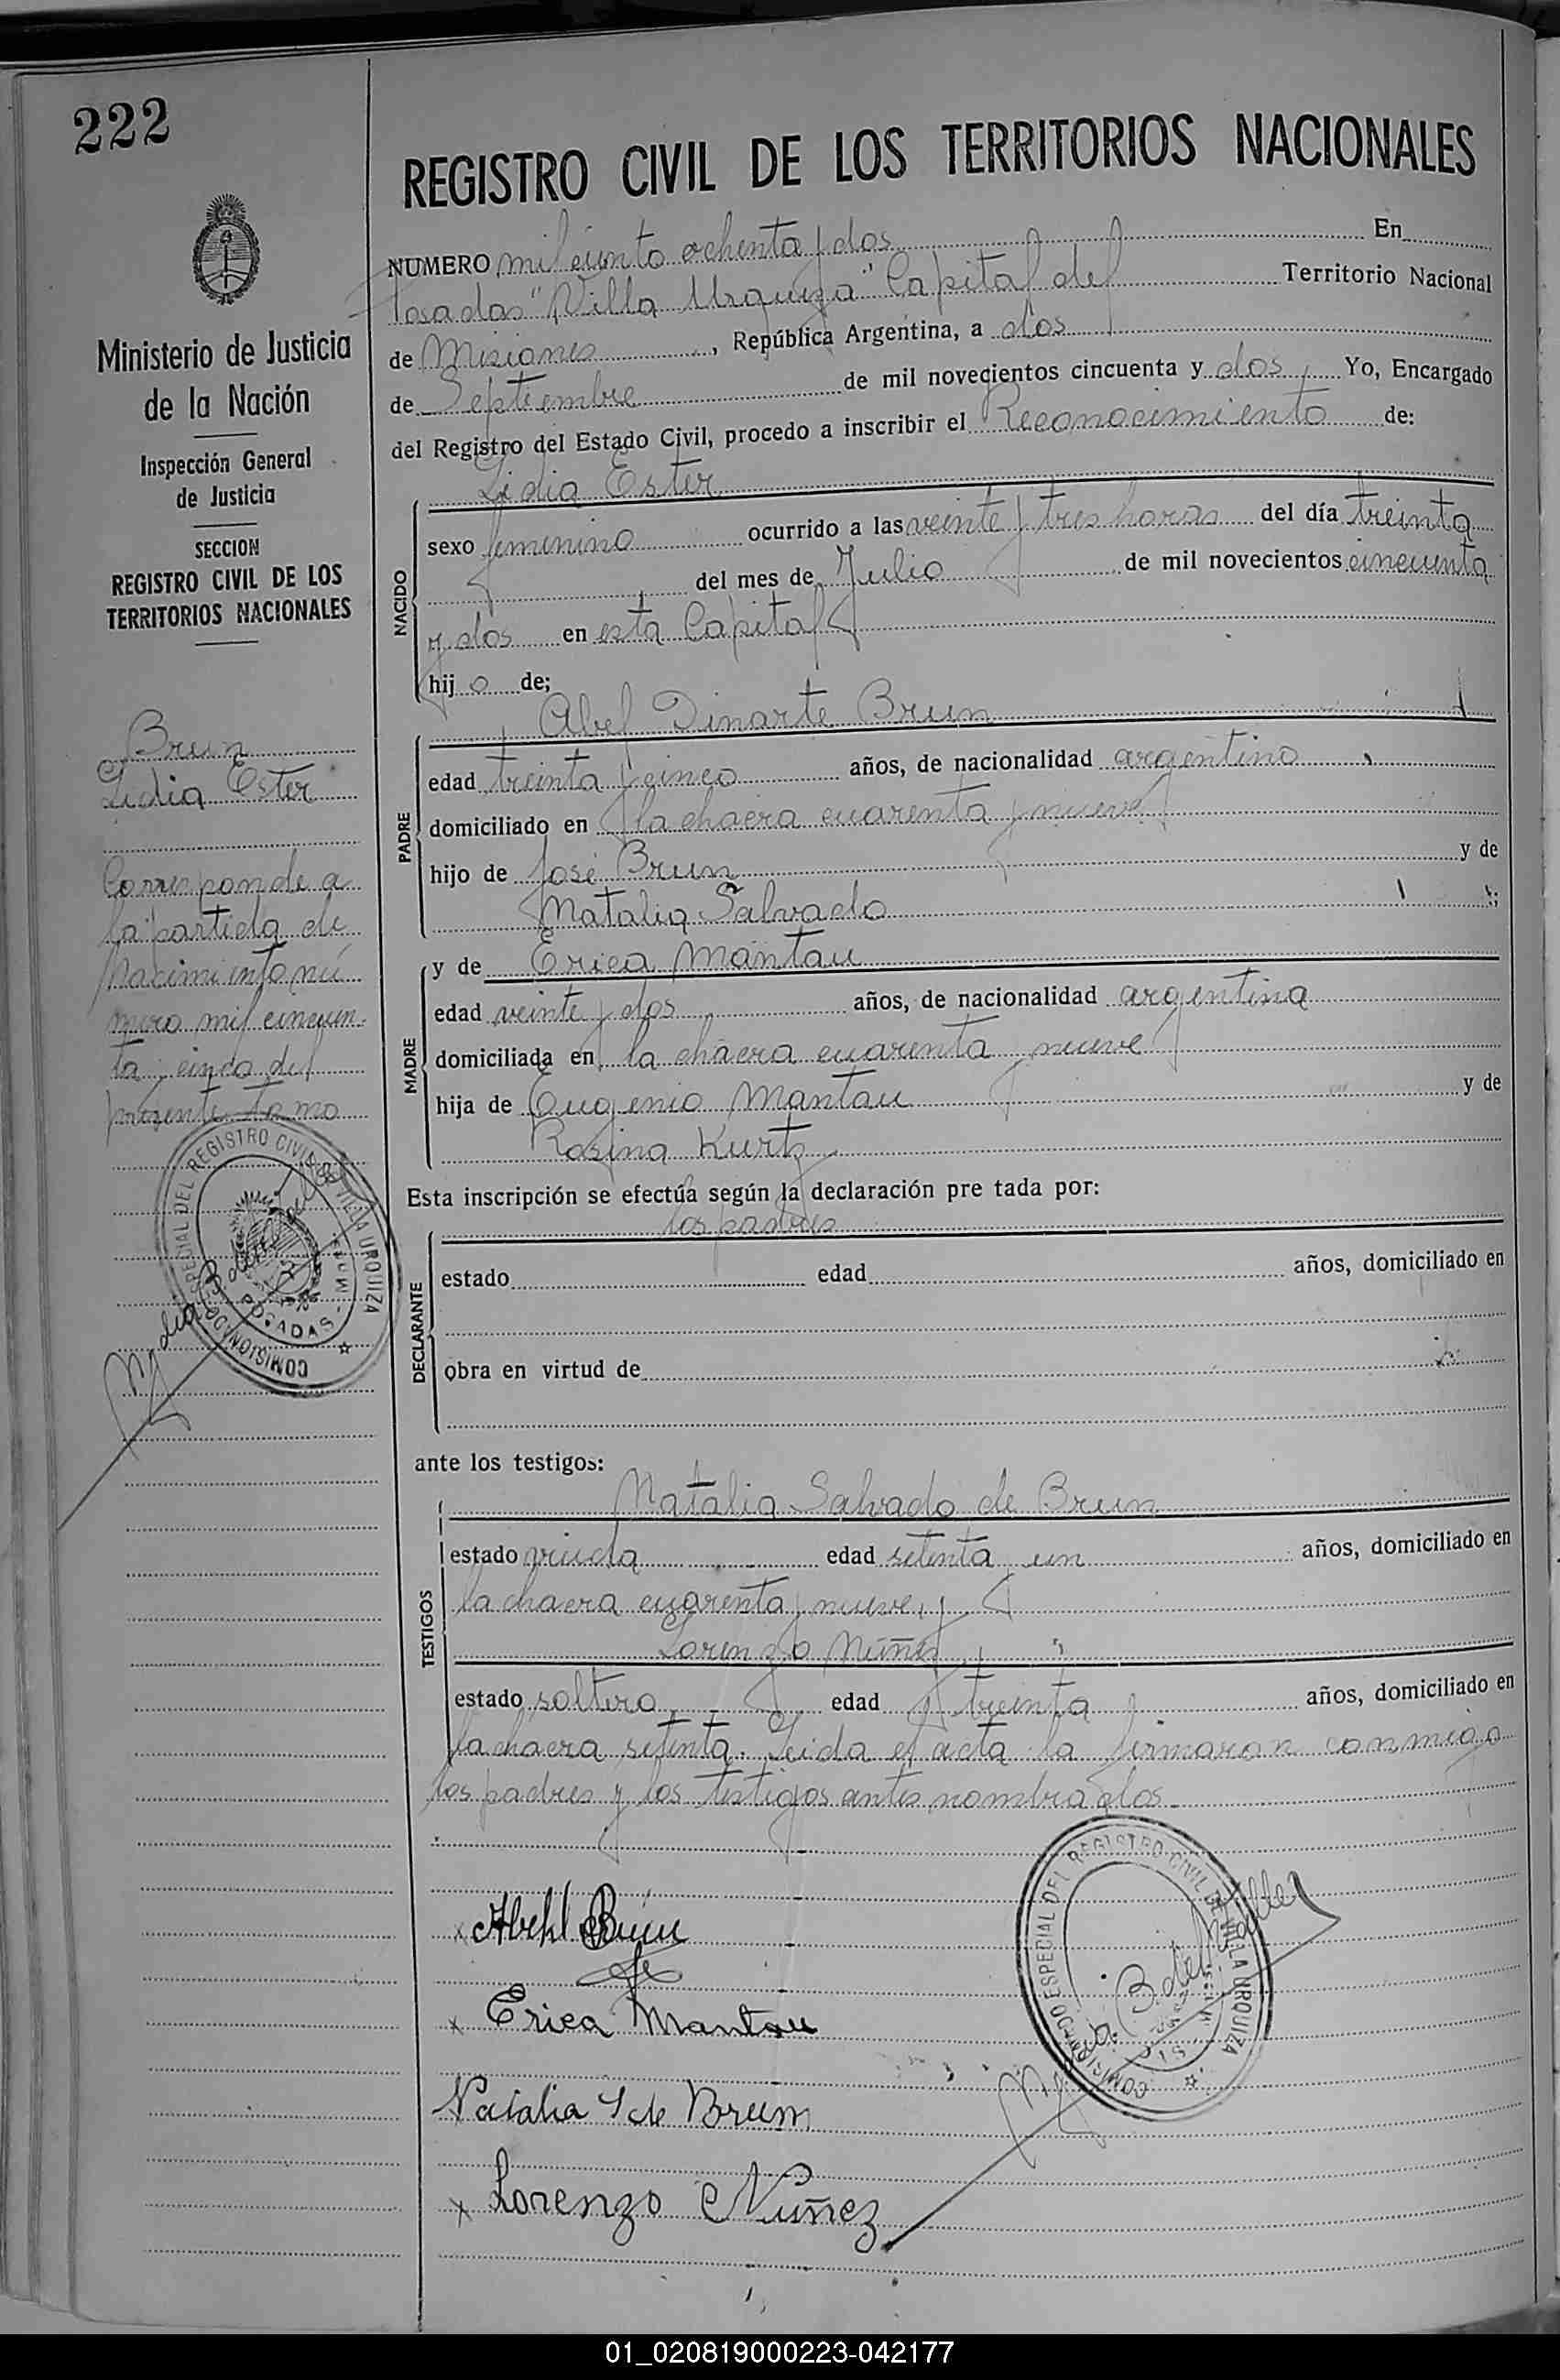 222
Ministerio de Justicia
de la Nación
Inspección General
de Justicia
SECCION
REGISTRO CIVIL DE LOS
TERRITORIOS NACIONALES
Brun
Lidia Ester
Corresponde a
la partida de
Nacimiento nú
mero mil cincuen-
ta y cinco del
presente tomo
COMISIONADO ESPECIAL DEL REGISTRO CIVIL DE VILLA URQUIZA
POSADAS - Mnes.
REGISTRO CIVIL DE LOS TERRITORIOS NACIONALES
NUMERO mil ciento ochenta y dos En
Posadas "Villa Urquiza" Capital del Territorio Nacional
de Misiones, República Argentina, a dos
de Septiembre de mil novecientos cincuenta y dos, Yo, Encargado
del Registro del Estado Civil, procedo a inscribir el Reconocimiento de:
Lidia Ester
NACIDO
sexo femenino ocurrido a las veinte y tres horas del día treinta
del mes de Julio de mil novecientos cincuenta
y dos en esta Capital
hij o de;
Abel Dinarte Brun
PADRE
edad treinta y cinco años, de nacionalidad argentino
domiciliado en la chacra cuarenta y nueve
hijo de José Brun y de
Natalia Salvado
MADRE
y de Erica Mantau
edad veinte y dos años, de nacionalidad argentina
domiciliada en la chacra cuarenta y nueve
hija de Eugenio Mantau y de
Rosina Kurtz
Esta inscripción se efectúa según la declaración pre tada por:
los padres
DECLARANTE
estado edad años, domiciliado en
obra en virtud de
ante los testigos:
Natalia Salvado de Brun
TESTIGOS
estado viuda edad setenta y un años, domiciliado en
la chacra cuarenta y nueve, y
Lorenzo Núñez
estado soltero edad treinta años, domiciliado en
la chacra setenta. Leida el acta la firmaron conmigo
los padres y los testigos antes nombrados
x Abehl Brun
x Erica Mantau
Natalia S de Brum
x Lorenzo Núñez
COMISIONADO ESPECIAL DEL REGISTRO CIVIL DE VILLA URQUIZA
01_020819000223-042177